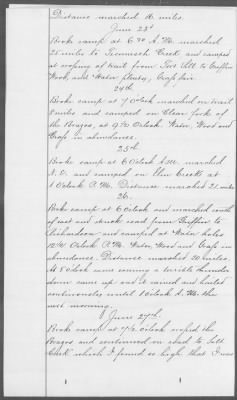 Distance marched 16 miles.
June 23d
Broke camp at 6.30 A.M. marched
25 miles to Tecumseh Creek and camped
at crossing of trail from Fort Sill to Griffin
Wood, and Water plenty, Grass fair
24th
Broke camp at 7 O'clock marched on trail
8 miles and camped on Clear fork of
the Brazos, at 9½ O'clock. Water, Wood and
Grass in abundance.
25th
Broke camp at 6 O'clock A.M. marched
N.E. and camped on Elm Creek at
1 O'clock P.M. Distance marched 21 miles
26.
Broke camp at 6 O'clock and marched south
of east and struck road from Griffin to
Richardson and camped at Water holes
12½ O'clock P.M. Water, Wood and Grass in
abundance. Distance marched 20 miles.
At 8 o'clock same evening a terrible thunder
storm came up and it rained and hailed
continuously until 1 O'clock A.M. the
next morning.
June 27th
Broke camp at 7½ O'clock crossed the
Brazos and continued on road to Salt
Creek which I found so high that I was